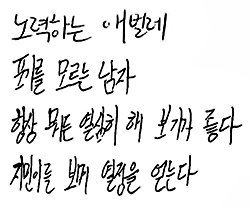 노력하는 애벌레
포기를 모르는 남자
항상 뭐든 열심히 해 보기가 좋다
지민이를 보며 열정을 얻는다